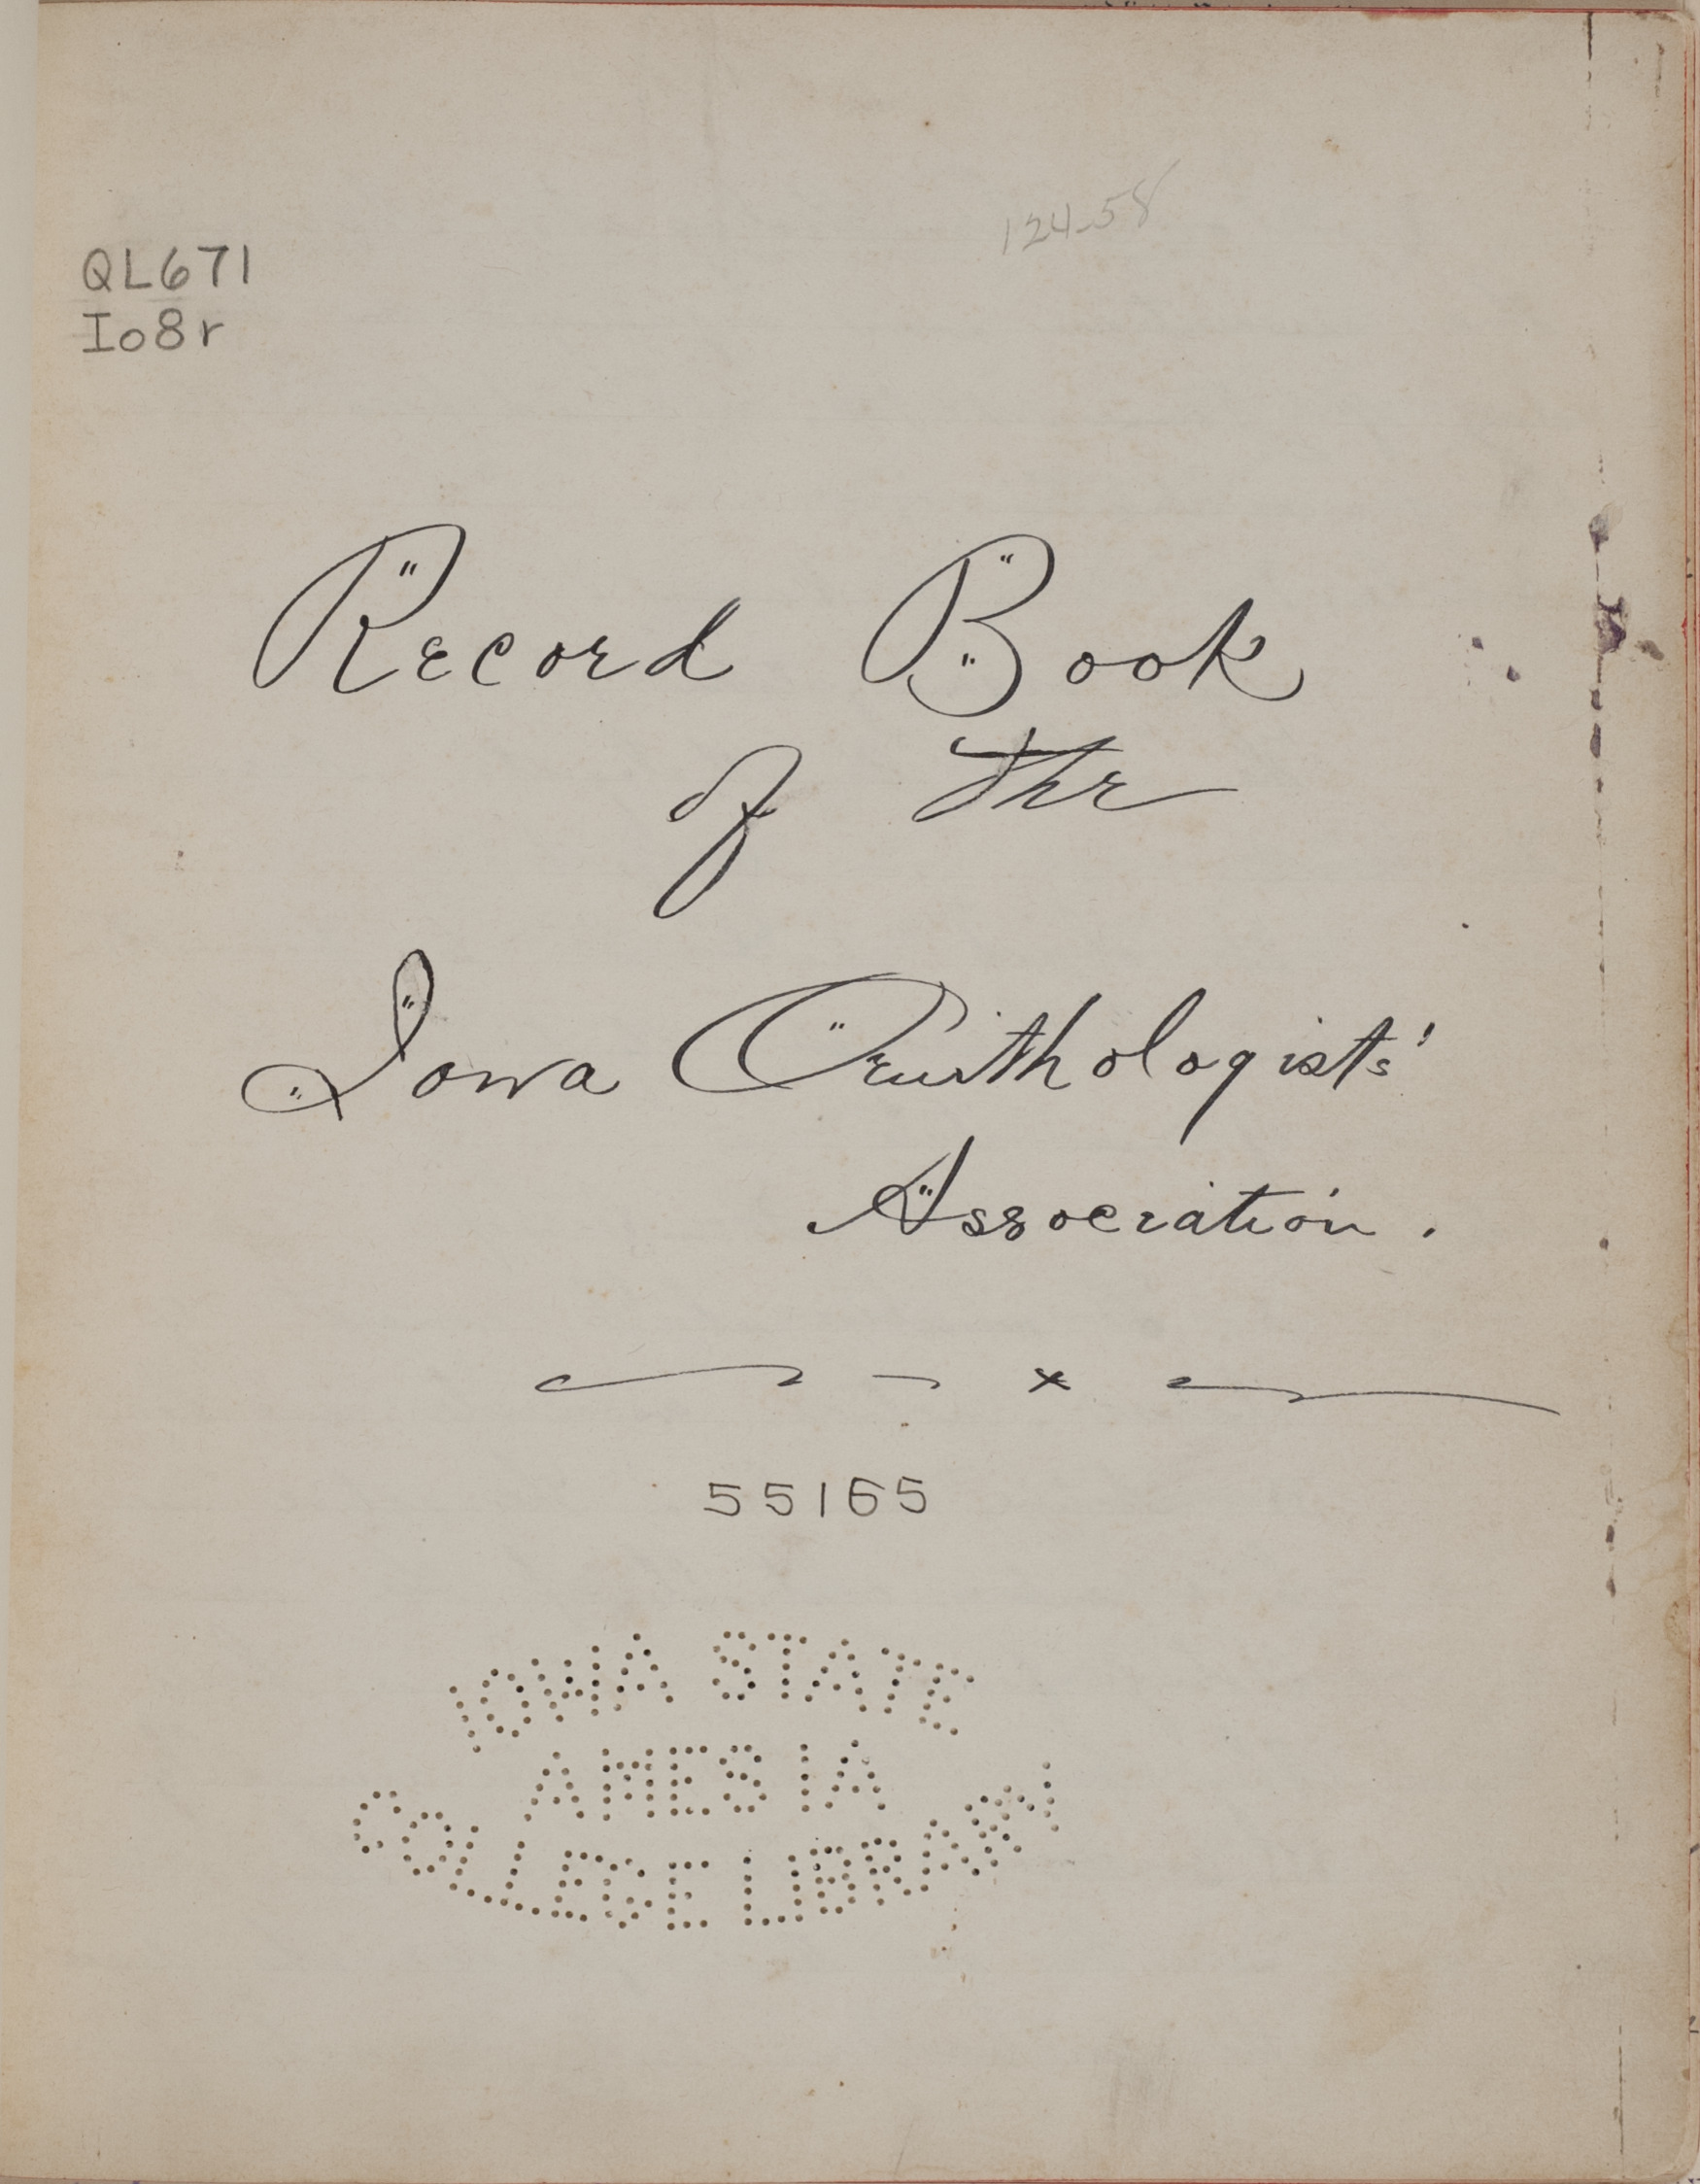 124-58
QL671
Io8r
Record Book
of the
Iowa Ornithologists'
Association.
55165
IOWA STATE
AMES IA
COLLEGE LIBRARY